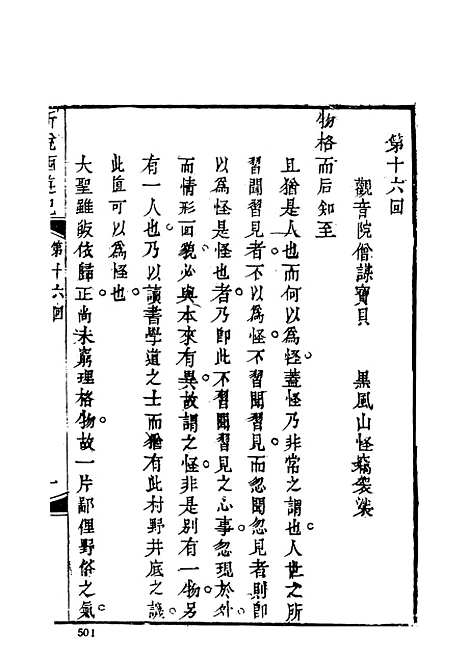 第十六回
觀音院僧謀寶貝　黑風山怪竊袈裟
物格而后知至
且猶是人也而何以為怪蓋怪乃非常之謂也人世之所
習聞習見者不以為怪不習聞習見而忽聞忽見者則即
以為怪是怪也者乃即此不習聞習見之心事忽現於外
而情形面貌必與本來有異故謂之怪非是別有一物另
有一人也乃以讀書學道之士而猶有此村野井底之譏
此豈可以為怪也
大聖雖皈依歸正尚未窮理格物故一片鄙俚野俗之氣
新說西遊記
第十六回
一
501